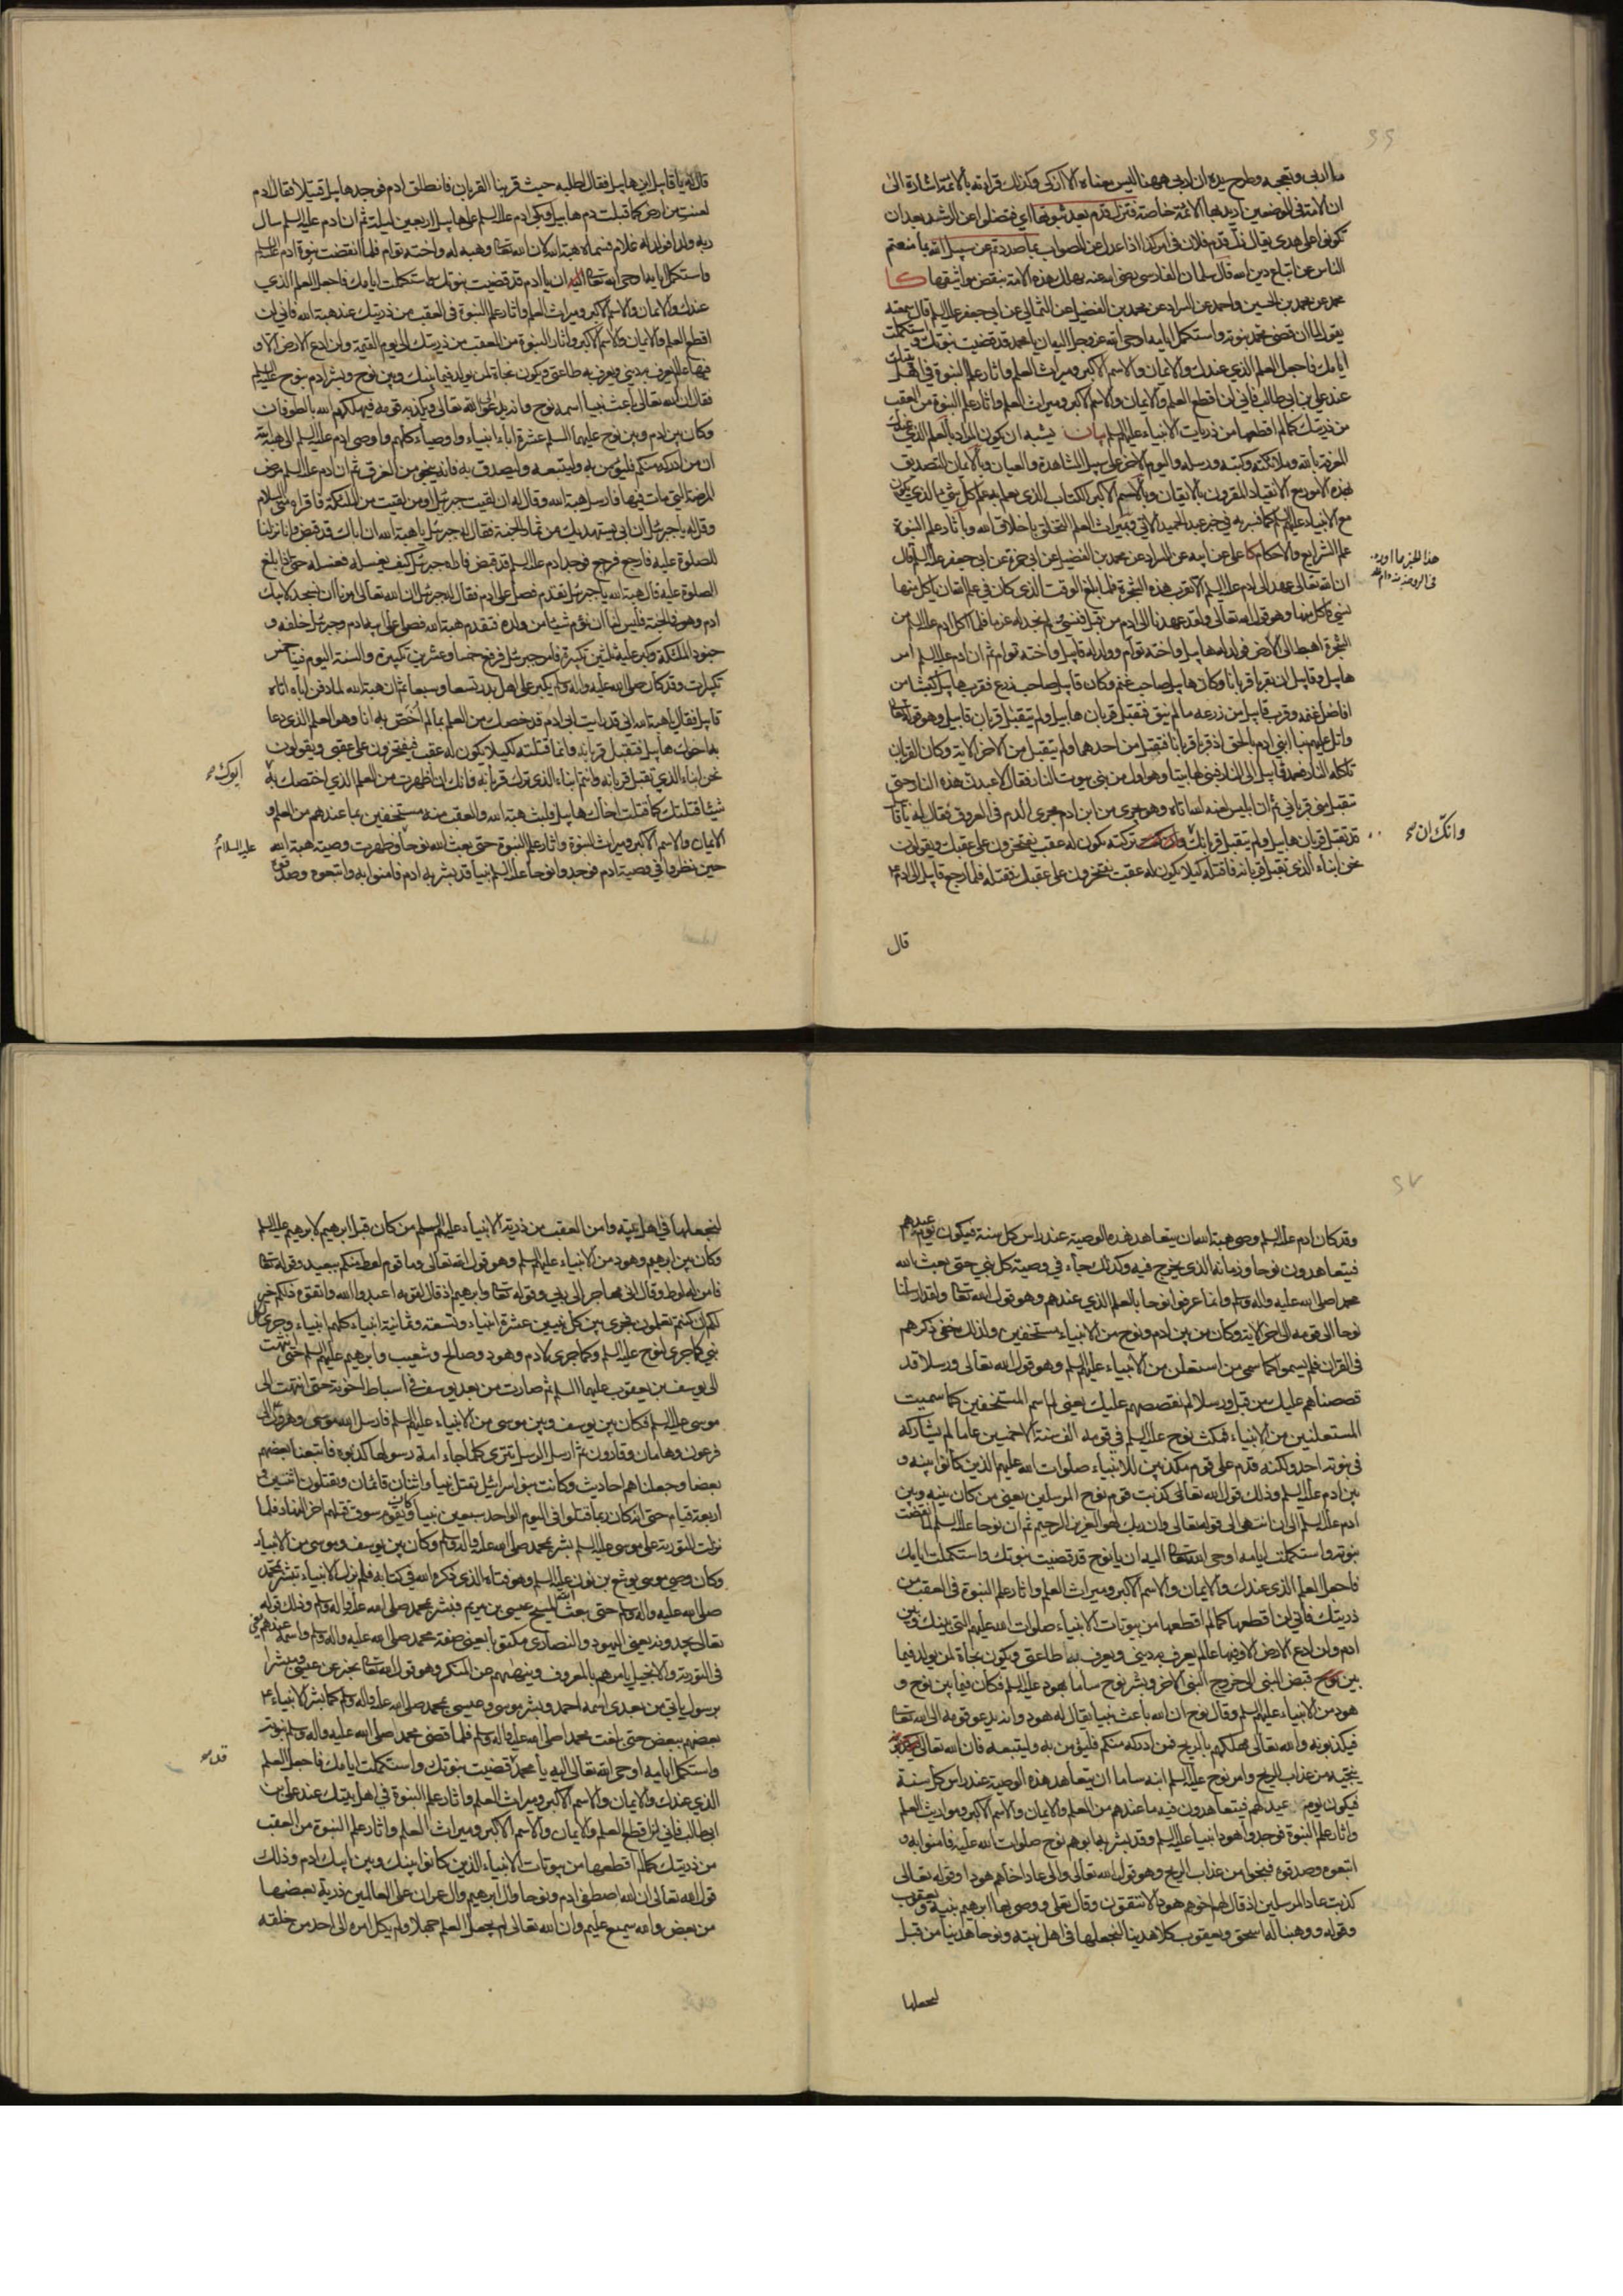 ما اربى وتعجب وطرح يده ان اربى ههنا ليس معناه الا ازكى وكذلك قراءته بالائمة اشارة الى
ان الامة في الموضعين اريد بها الائمة خاصة فتزل قدم بعد ثبوتها اي فتضلوا عن الرشد بعد ان
تكونوا على هدى يقال زل قدم فلان في امر كذا اذا عدل عن الصواب بما صددتم عن سبيل الله بما منعتم
الناس عن اتباع دين الله قال سلمان الفارسي رضي الله عنه تهلك هذه الامة بنقض مواثيقها كا
محمد عن محمد بن الحسين واحمد عن السراد عن محمد بن الفضيل عن الثمالي عن ابي جعفر عليه السلم قال سمعته
يقول لما ان قضى محمد نبوته واستكمل ايامه اوحى الله عز وجل اليه ان يا محمد قد قضيت نبوتك واستكملت
ايامك فاجعل العلم الذي عندك والايمان والاسم الاكبر وميراث العلم واثار علم النبوة في اهل بيتك
عند علي بن ابي طالب فاني لن اقطع العلم والايمان والاسم الاكبر وميراث العلم واثار علم النبوة من العقب
من ذريتك كما لم اقطعها من ذريات الانبياء عليهم السلم بيان يشبه ان يكون المراد بالعلم الذي عندك
المعرفة بالله وملائكته وكتبه ورسله واليوم الاخر على سبيل المشاهدة والعيان وبالايمان التصديق
بهذه الامور مع الانقياد المقرون بالايقان وبالاسم الاكبر الكتاب الذي يعلم به علم كل شيء الذي يكون
مع الانبياء عليهم السلم كما فسر به في خبر عبد الحميد الاتي وبميراث العلم التخلق باخلاق الله وباثار علم النبوة
علم الشرايع والاحكام كا علي عن ابيه عن السراد عن محمد بن الفضيل عن ابي حمزة عن ابي جعفر عليه السلم قال
هذا الخبر مما اورده
في الروضة
ان الله تعالى عهد الى ادم عليه السلم الا تقرب هذه الشجرة فلما بلغ الوقت الذي كان في علم الله ان ياكل منها
نسي فاكل منها وهو قول الله تعالى ولقد عهدنا الى ادم من قبل فنسي ولم نجد له عزما فلما اكل ادم عليه السلم من
الشجرة اهبط الى الارض فولد له هابيل واخته توام وولد له قابيل واخته توام ثم ان ادم عليه السلم امر
هابيل وقابيل ان يقربا قربانا وكان هابيل صاحب غنم وكان قابيل صاحب زرع فقرب هابيل كبشا من
افاضل غنمه وقرب قابيل من زرعه ما لم ينق فتقبل قربان هابيل ولم يتقبل قربان قابيل وهو قوله تعالى
واتل عليهم نبا ابني ادم بالحق اذ قربا قربانا فتقبل من احدهما ولم يتقبل من الاخر الاية وكان القربان
تاكله النار فعمد قابيل الى النار فبنى لها بيتا وهو اول من بنى بيوت النار فقال لاعبدن هذه النار حتى
تتقبل مني قرباني ثم ان ابليس لعنه الله اتاه وهو يجري من ابن ادم مجرى الدم في العروق فقال له يا قابيل
قد تقبل قربان هابيل ولم يتقبل قربانك تركته يكون له عقب يفتخرون على عقبك ويقولون
وانك ان صح
نحن ابناء الذي تقبل قربانه فاقتله كيلا يكون له عقب يفتخرون على عقبك فقتله فلما رجع قابيل الى ادم
قال
قال له يا قابيل اين هابيل فقال اطلبه حيث قربنا القربان فانطلق ادم فوجد هابيل قتيلا فقال ادم
لعنت من ارض كما قبلت دم هابيل وبكى ادم عليه السلم على هابيل اربعين ليلة ثم ان ادم عليه السلم سال
ربه ولدا فولد له غلام فسماه هبة الله لان الله تعالى وهبه له واخته توام فلما انقضت نبوة ادم عليه السلم
واستكمل ايامه اوحى الله تعالى اليه ان يا ادم قد قضيت نبوتك واستكملت ايامك فاجعل العلم الذي
عندك والايمان والاسم الاكبر وميراث العلم واثار علم النبوة في العقب من ذريتك عند هبة الله فاني لن
اقطع العلم والايمان والاسم الاكبر واثار النبوة من العقب من ذريتك الى يوم القيمة ولن ادع الارض الا و
فيها عالم يعرف به ديني ويعرف به طاعتي ويكون نجاة لمن يولد فيما بينك وبين نوح وبشر ادم بنوح عليه السلم
فقال ان الله تعالى باعث نبيا اسمه نوح وانه يدعو الى الله تعالى ويكذبه قومه فيهلكهم الله بالطوفان
وكان بين ادم وبين نوح عليهما السلم عشرة اباء انبياء واوصياء كلهم واوصى ادم عليه السلم الى هبة الله
ان من ادركه منكم فليؤمن به وليتبعه وليصدق به فانه ينجو من الغرق ثم ان ادم عليه السلم مرض
المرضة التي مات فيها فارسل هبة الله وقال له ان لقيت جبرئيل او من لقيت من الملئكة فاقراه مني السلام
وقل له يا جبرئيل ان ابي يستهديك من ثمار الجنة فقال له جبرئيل يا هبة الله ان اباك قد قبض وانا نزلنا
للصلوة عليه فارجع فرجع فوجد ادم عليه السلم قد قبض فاراه جبرئيل كيف يغسله فغسله حتى اذا بلغ
الصلوة عليه قال هبة الله يا جبرئيل تقدم فصل على ادم فقال له جبرئيل ان الله تعالى امرنا ان نسجد لابيك
ادم وهو في الجنة فليس لنا ان نؤم شيئا من ولده فتقدم هبة الله فصلى على ابيه ادم وجبرئيل خلفه و
جنود الملئكة وكبر عليه ثلثين تكبيرة فامر جبرئيل فرفع خمسا وعشرين تكبيرة والسنة اليوم فينا خمس
تكبيرات وقد كان صلى الله عليه واله وسلم يكبر على اهل بدر تسعا وسبعا ثم ان هبة الله لما دفن اباه اتاه
قابيل فقال يا هبة الله اني قد رايت ابي ادم قد خصك من العلم بما لم اخص به انا وهو العلم الذي دعا
به اخوك هابيل فتقبل قربانه وانما قتلته لكيلا يكون له عقب فيفتخرون على عقبي ويقولون
نحن ابناء الذي تقبل قربانه وانتم ابناء الذي ترك قربانه فانك ان اظهرت من العلم الذي اختصك به
ابوك صح
شيئا قتلتك كما قتلت اخاك هابيل فلبث هبة الله والعقب منه مستخفين بما عندهم من العلم و
الايمان والاسم الاكبر وميراث النبوة واثار علم النبوة حتى بعث الله نوحا وظهرت وصية هبة الله
عليه السلام
حين نظروا في وصية ادم فوجدوا نوحا عليه السلم نبيا قد بشر به ادم فامنوا به واتبعوه وصدقوه
وقد كان ادم عليه السلم وصى هبة الله ان يتعاهد هذه الوصية عند راس كل سنة فيكون يوم عيدهم
فيتعاهدون نوحا وزمانه الذي يخرج فيه وكذلك جاء في وصية كل نبي حتى بعث الله
محمدا صلى الله عليه واله وسلم وانما عرفوا نوحا بالعلم الذي عندهم وهو قول الله تعالى ولقد ارسلنا
نوحا الى قومه الى اخر الاية وكان من بين ادم ونوح من الانبياء مستخفين ولذلك خفي ذكرهم
في القران فلم يسموا كما سمي من استعلن من الانبياء عليهم السلم وهو قول الله تعالى ورسلا قد
قصصناهم عليك من قبل ورسلا لم نقصصهم عليك يعني لم اسم المستخفين كما سميت
المستعلنين من الانبياء فمكث نوح عليه السلم في قومه الف سنة الا خمسين عاما لم يشاركه
في نبوته احد ولكنه قدم على قوم مكذبين للانبياء صلوات الله عليهم الذين كانوا بينه و
بين ادم عليه السلم وذلك قول الله تعالى كذبت قوم نوح المرسلين يعني من كان بينه وبين
ادم عليه السلم الى ان انتهى الى قوله تعالى وان ربك لهو العزيز الرحيم ثم ان نوحا عليه السلم لما انقضت
نبوته واستكملت ايامه اوحى الله تعالى اليه ان يا نوح قد قضيت نبوتك واستكملت ايامك
فاجعل العلم الذي عندك والايمان والاسم الاكبر وميراث العلم واثار علم النبوة في العقب من
ذريتك فاني لن اقطعها كما لم اقطعها من بيوتات الانبياء صلوات الله عليهم التي بينك وبين
ادم ولن ادع الارض الا وفيها عالم يعرف به ديني ويعرف به طاعتي ويكون نجاة لمن يولد فيما
بين قبض النبي الى خروج النبي الاخر وبشر نوح ساما بهود عليه السلم فكان فيما بين نوح و
هود من الانبياء عليهم السلم وقال نوح ان الله باعث نبيا يقال له هود وانه يدعو قومه الى الله تعالى
فيكذبونه والله تعالى مهلكهم بالريح فمن ادركه منكم فليؤمن به وليتبعه فان الله تعالى
ينجيه من عذاب الريح وامر نوح عليه السلم ابنه ساما ان يتعاهد هذه الوصية عند راس كل سنة
فيكون يوم عيد لهم فيتعاهدون فيه ما عندهم من العلم والايمان والاسم الاكبر ومواريث العلم
واثار علم النبوة فوجدوا هودا نبيا عليه السلم وقد بشر به ابوهم نوح صلوات الله عليه فامنوا به و
اتبعوه وصدقوه فنجوا من عذاب الريح وهو قول الله تعالى والى عاد اخاهم هودا وقوله تعالى
كذبت عاد المرسلين اذ قال لهم اخوهم هود الا تتقون وقال تعالى ووصى بها ابرهيم بنيه ويعقوب
وقوله ووهبنا له اسحق ويعقوب كلا هدينا لنجعلها في اهل بيته ونوحا هدينا من قبل
لنجعلها
لنجعلها في اهل بيته وامن العقب من ذرية الانبياء عليهم السلم من كان قبل ابرهيم لابرهيم عليه السلم
وكان بين ابرهيم وهود من الانبياء عليهم السلم وهو قول الله تعالى وما قوم لوط منكم ببعيد وقوله تعالى
فامن له لوط وقال اني مهاجر الى ربي وقوله تعالى وابرهيم اذ قال لقومه اعبدوا الله واتقوه ذلكم خير
لكم ان كنتم تعلمون فجرى بين كل نبيين عشرة انبياء وتسعة وثمانية انبياء كلهم انبياء وجرى لكل
نبي كما جرى لنوح عليه السلم وكما جرى لادم وهود وصالح وشعيب وابرهيم عليهم السلم حتى انتهت
الى يوسف بن يعقوب عليهما السلم ثم صارت من بعد يوسف في اسباط اخوته حتى انتهت الى
موسى عليه السلم فكان بين يوسف وبين موسى من الانبياء عليهم السلم فارسل الله موسى وهرون الى
فرعون وهامان وقارون ثم ارسل الرسل تترى كلما جاء امة رسولها كذبوه فاتبعنا بعضهم
بعضا وجعلناهم احاديث وكانت بنو اسرائيل تقتل نبيا واثنان قائمان ويقتلون اثنين و
اربعة قيام حتى انه كان ربما قتلوا في اليوم الواحد سبعين نبيا ويقوم سوق قتلهم اخر النهار فلما
نزلت التورية على موسى عليه السلم بشر بمحمد صلى الله عليه واله وسلم وكان بين يوسف وموسى من الانبياء
وكان وصي موسى يوشع بن نون عليه السلم وهو فتاه الذي ذكره الله في كتابه فلم تزل الانبياء تبشر بمحمد
صلى الله عليه واله وسلم حتى بعث الله المسيح عيسى بن مريم فبشر بمحمد صلى الله عليه واله وسلم وذلك قوله
تعالى يجدونه يعني اليهود والنصارى مكتوبا يعني صفة محمد صلى الله عليه واله وسلم واسمه عندهم يعني
في التورية والانجيل يامرهم بالمعروف وينهيهم عن المنكر وهو قول الله تعالى يخبر عن عيسى ومبشرا
برسول ياتي من بعدي اسمه احمد وبشر موسى وعيسى بمحمد صلى الله عليه واله وسلم كما بشر الانبياء
بعضهم ببعض حتى بلغت محمدا صلى الله عليه واله وسلم فلما قضى محمد صلى الله عليه واله وسلم نبوته
واستكمل ايامه اوحى الله تعالى اليه يا محمد قضيت نبوتك واستكملت ايامك فاجعل العلم
قد صح
الذي عندك والايمان والاسم الاكبر وميراث العلم واثار علم النبوة في اهل بيتك عند علي بن
ابي طالب فاني لن اقطع العلم والايمان والاسم الاكبر وميراث العلم واثار علم النبوة من العقب
من ذريتك كما لم اقطعها من بيوتات الانبياء الذين كانوا بينك وبين ابيك ادم وذلك
قول الله تعالى ان الله اصطفى ادم ونوحا وال ابرهيم وال عمران على العالمين ذرية بعضها
من بعض والله سميع عليم وان الله تعالى لم يجعل العلم جهلا ولم يكل امره الى احد من خلقه